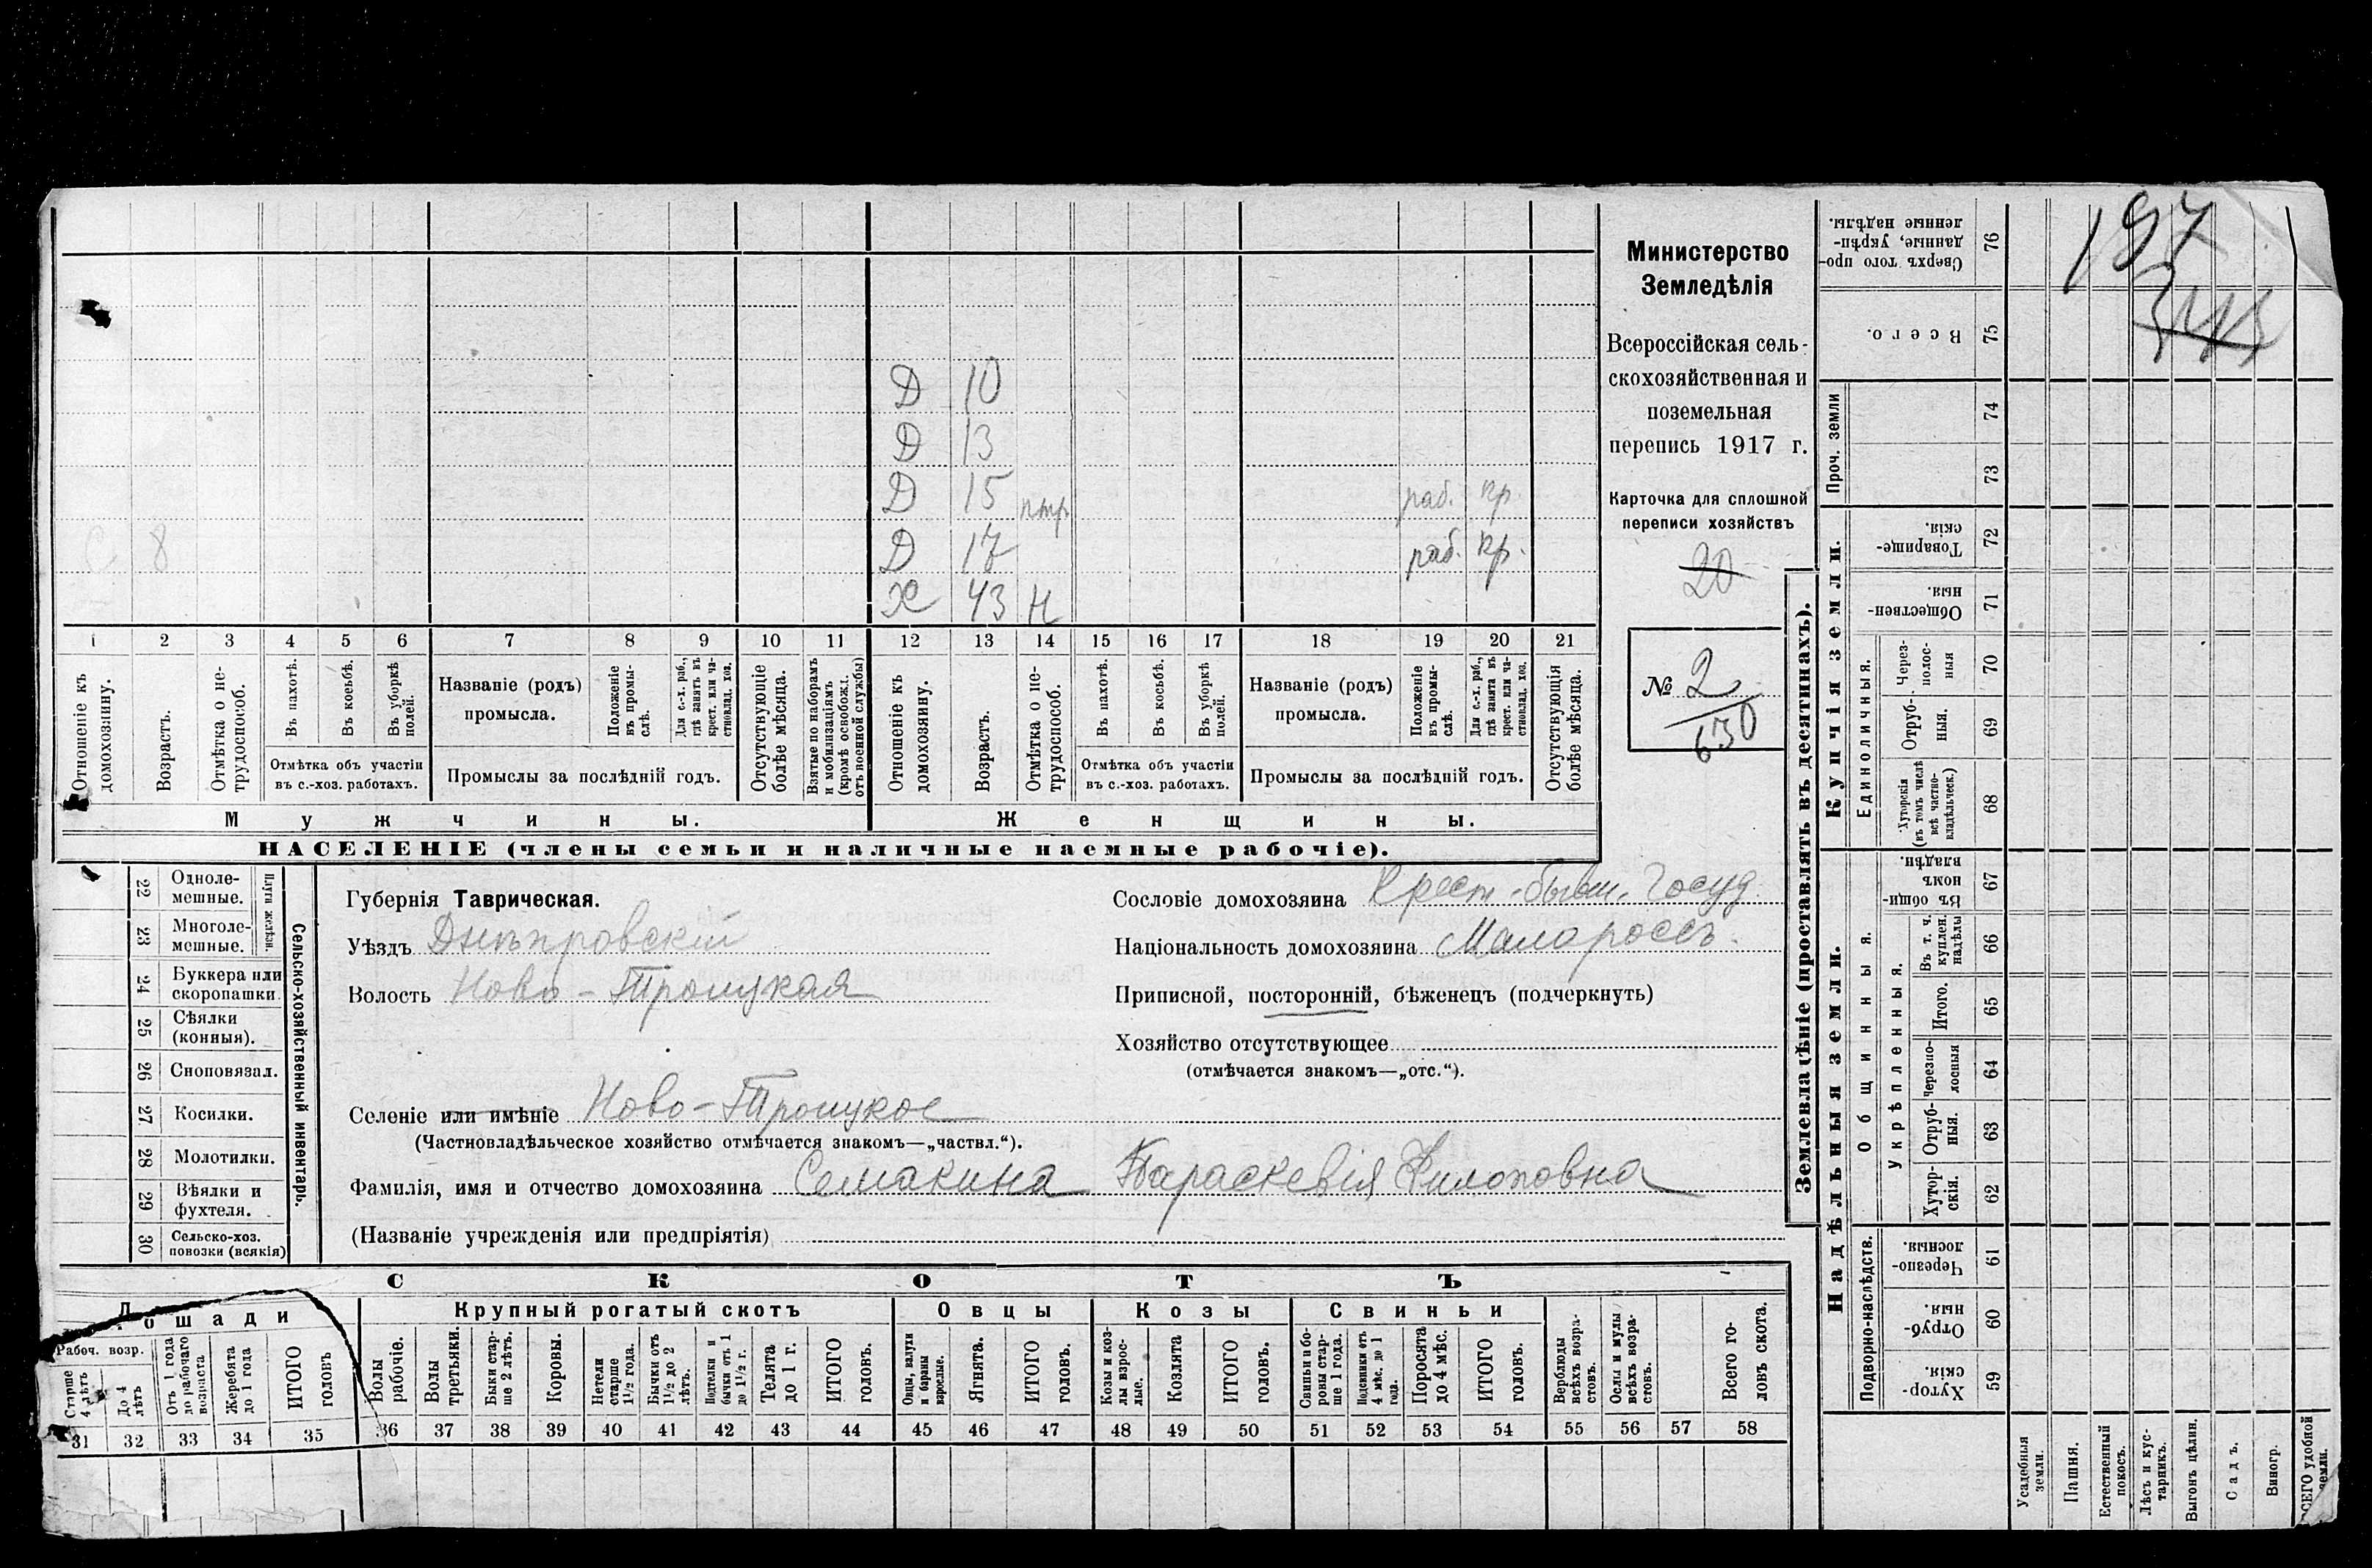 Министерство
Земледѣлія
Всероссійская сель-
скохозяйственная и
поземельная
перепись 1917 г.
Карточка для сплошной
переписи хозяйствъ
20
№ 2
630
197
Д 10
Д 13
Д 15 нтр раб. кр.
Д 17 раб. кр.
С 8
Х 43 Н
1 2 3 4 5 6 7 8 9 10 11 12 13 14 15 16 17 18 19 20 21
Отношеніе къ домохозяину.
Возрастъ.
Отмѣтка о не-трудоспособ.
Въ пахотѣ.
Въ косьбѣ.
Въ уборкѣ полей.
Отмѣтка объ участіи
въ с.-хоз. работахъ.
Названіе (родъ)
промысла.
Положеніе въ промы-слѣ.
Для с.-х. раб., гдѣ занятъ въ крест. или ча-стновлад. хоз.
Промыслы за послѣдній годъ.
Отсутствующіе болѣе мѣсяца.
Взятые по наборамъ и мобилизаціямъ (кромѣ освобожд. отъ военной службы)
Отношеніе къ домохозяину.
Возрастъ.
Отмѣтка о не-трудоспособ.
Въ пахотѣ.
Въ косьбѣ.
Въ уборкѣ полей.
Отмѣтка объ участіи
въ с.-хоз. работахъ.
Названіе (родъ)
промысла.
Положеніе въ промы-слѣ.
Для с.-х. раб., гдѣ занята въ крест. или ча-стновлад. хоз.
Промыслы за послѣдній годъ.
Отсутствующія болѣе мѣсяца.
Мужчины.
Женщины.
НАСЕЛЕНІЕ (члены семьи и наличные наемные рабочіе).
Сельско-хозяйственный инвентарь.
Плуги желѣзн.
22 Одноле-мешные.
23 Многоле-мешные.
24 Буккера или скоропашки.
25 Сѣялки (конныя).
26 Сноповязал.
27 Косилки.
28 Молотилки.
29 Вѣялки и фухтеля.
30 Сельско-хоз. повозки (всякія)
Губернія Таврическая.
Уѣздъ Днѣпровскій
Волость Ново-Троицкая
Селеніе или имѣніе Ново-Троицкое
(Частновладѣльческое хозяйство отмѣчается знакомъ—„частвл.“).
Фамилія, имя и отчество домохозяина Семакина Параскевія Филоповна
(Названіе учрежденія или предпріятія)
Сословіе домохозяина Крест. бывш. Госуд.
Національность домохозяина Малороссъ.
Приписной, посторонній, бѣженецъ (подчеркнуть)
Хозяйство отсутствующее
(отмѣчается знакомъ—„отс.“).
СКОТЪ
Лошади
Рабоч. возр.
Старше 4 лѣтъ
До 4 лѣтъ
Отъ 1 года до рабочаго возраста
Жеребята до 1 года
ИТОГО головъ
Крупный рогатый скотъ
Волы рабочіе.
Волы третьяки.
Быки стар-ше 2 лѣтъ.
Коровы.
Нетели старше 1½ года.
Бычки отъ 1½ до 2 лѣтъ.
Подтелки и бычки отъ 1 до 1½ г.
Телята до 1 г.
ИТОГО головъ.
Овцы
Овцы, валухи и бараны взрослые.
Ягнята.
ИТОГО головъ.
Козы
Козы и коз-лы взрос-лые.
Козлята
ИТОГО головъ.
Свиньи
Свиньи и бо-ровы стар-ше 1 года.
Подсвинки отъ 4 мѣс. до 1 года.
Поросята до 4 мѣс.
ИТОГО головъ.
Верблюды всѣхъ возра-стовъ.
Ослы и мулы всѣхъ возра-стовъ.
Всего го-ловъ скота.
31 32 33 34 35 36 37 38 39 40 41 42 43 44 45 46 47 48 49 50 51 52 53 54 55 56 57 58
Землевладѣніе (проставлять въ десятинахъ).
Надѣльныя земли.
Купчія земли.
Проч. земли
Подворно-наслѣдств.
Общинныя.
Укрѣпленныя.
Единоличныя.
76 Сверхъ того про-данные, укрѣп-ленные надѣлы.
75 Всего.
74
73
72 Товарище-скія.
71 Обществен-ныя.
70 Через-полос-ныя
69 Отруб-ныя.
68 Хуторскія (въ томъ числѣ всѣ частно-владѣльческ.)
67 Въ общин-номъ владѣн.
66 Въ т. ч. куплен. надѣлы
65 Итого.
64 Черезпо-лосныя
63 Отруб-ныя.
62 Хутор-скія.
61 Черезпо-лосныя.
60 Отруб-ныя.
59 Хутор-скія.
Усадебныя земли.
Пашня.
Естественный покосъ.
Лѣсъ и кус-тарникъ.
Выгонъ цѣлин.
Садъ.
Виногр.
ВСЕГО удобной земли.